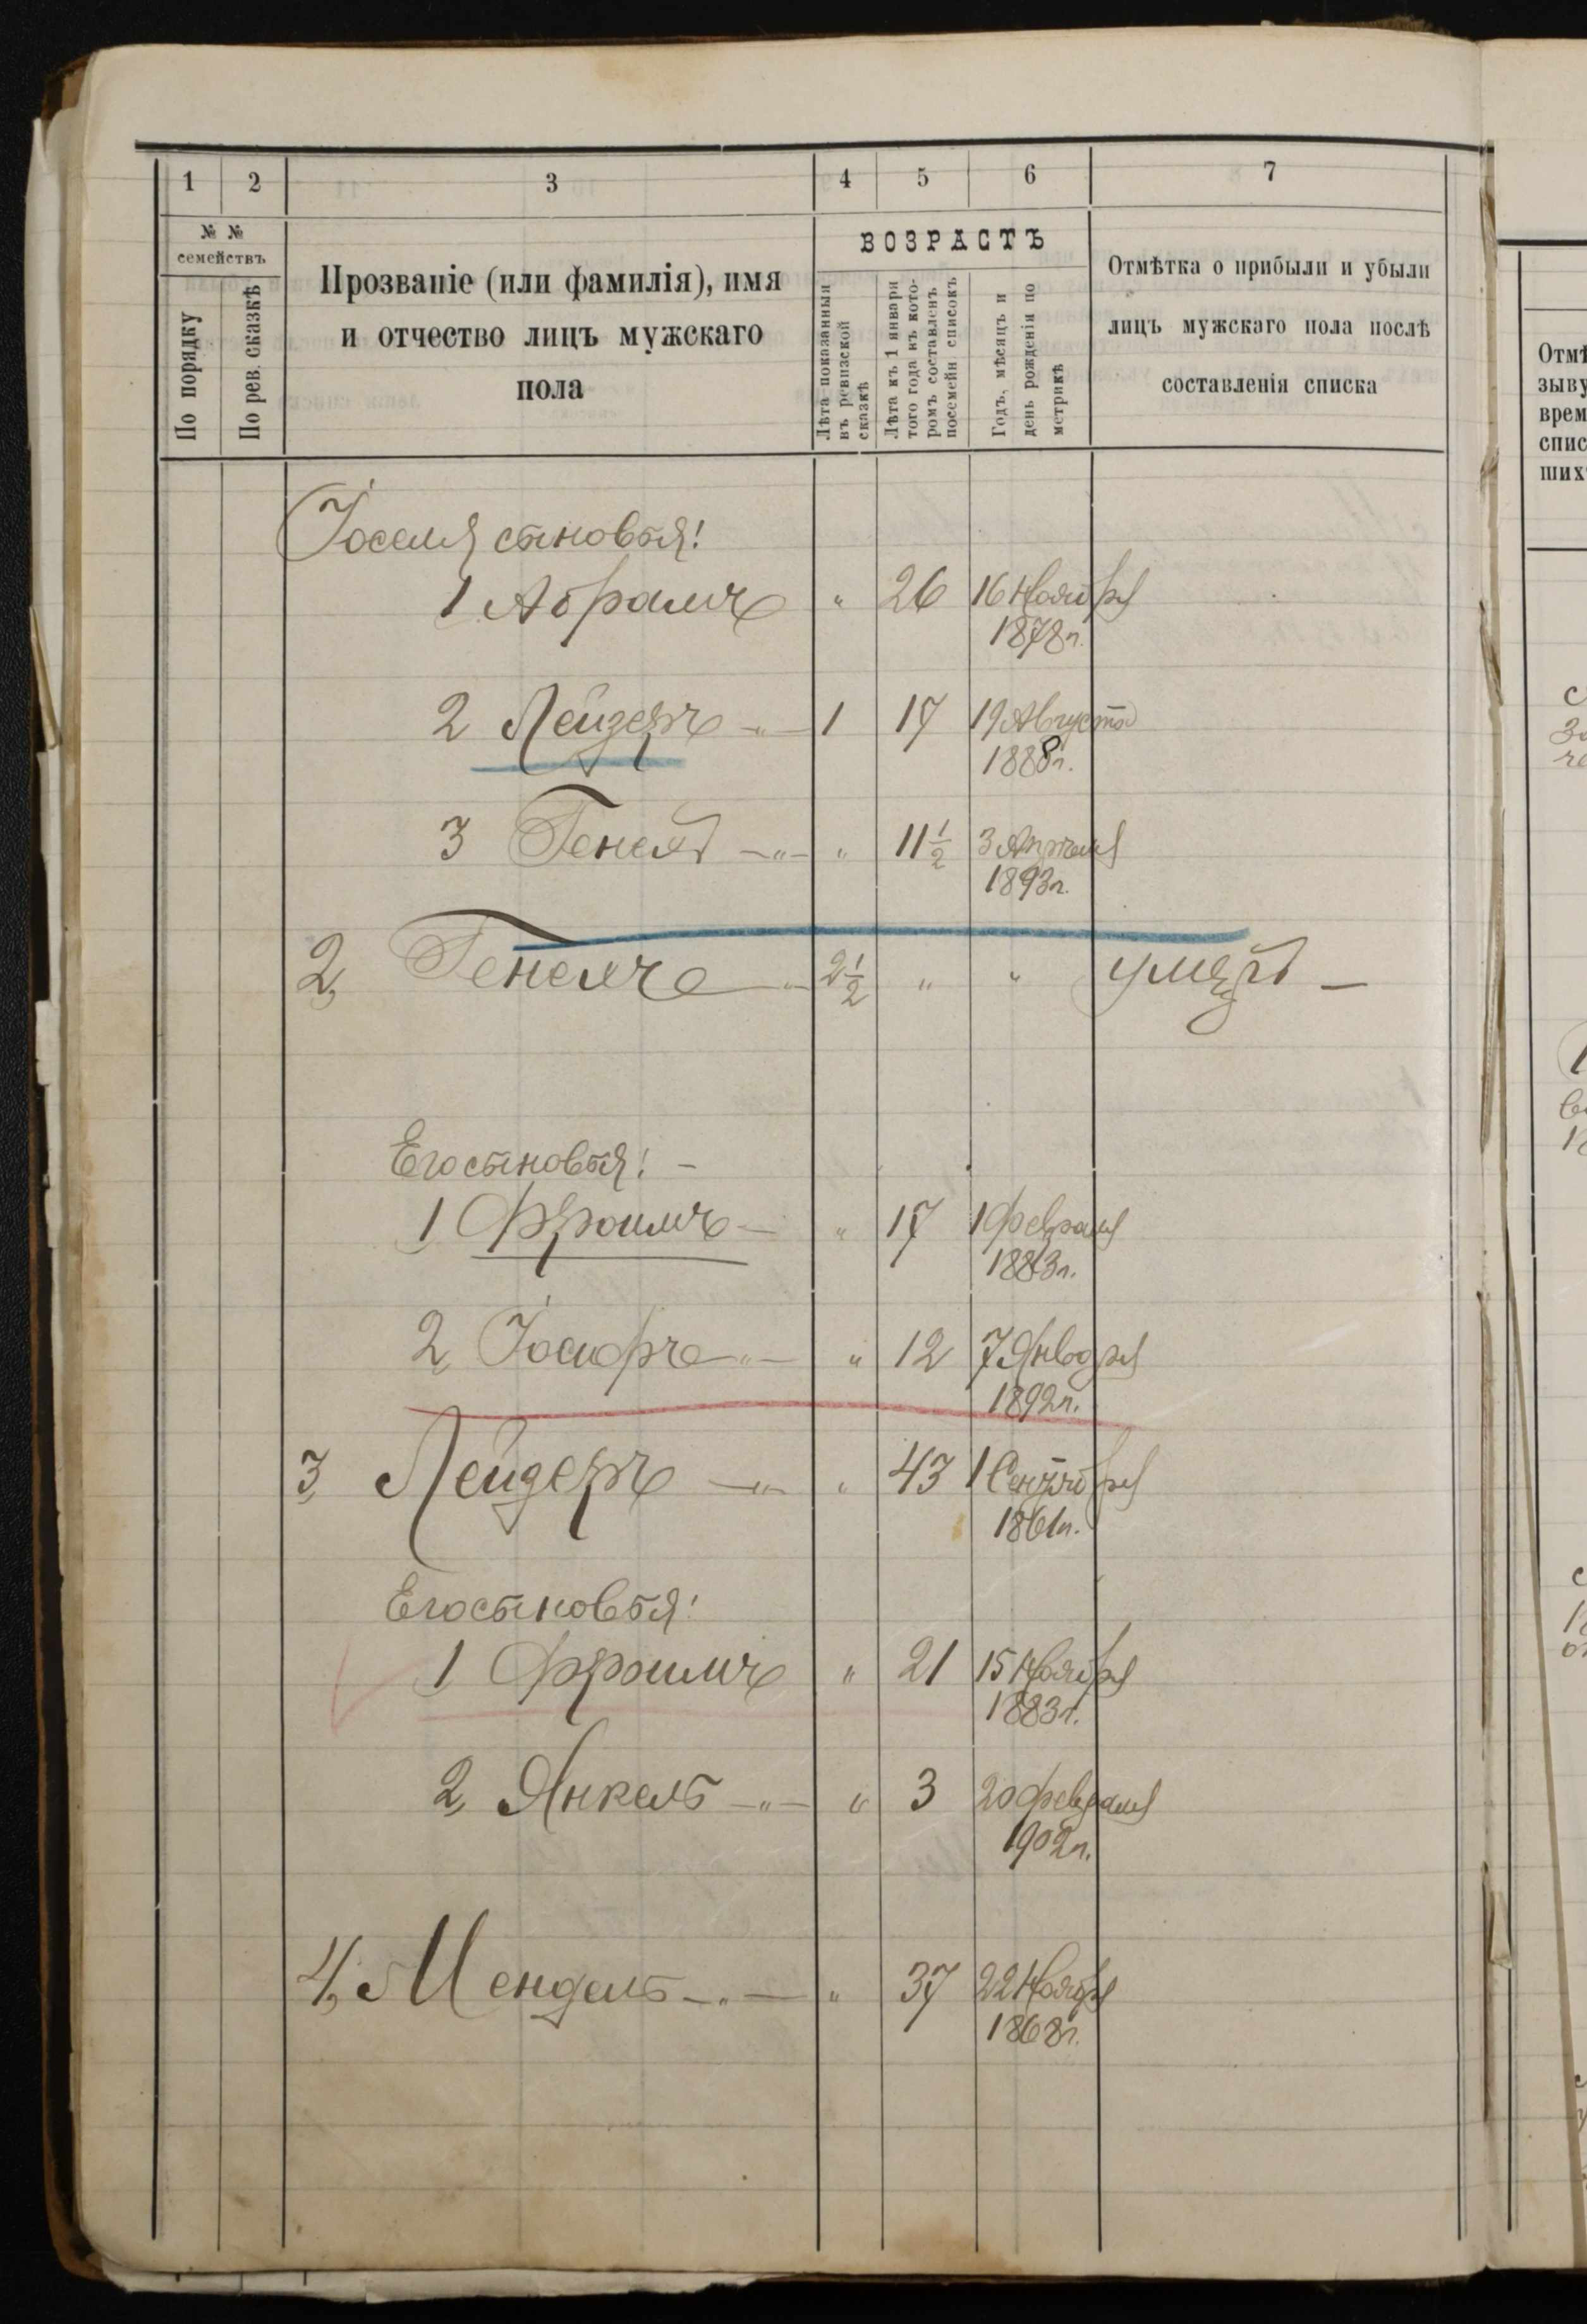 1 2 3 4 5 6 7
№ №
семействъ
По порядку
По рев. сказкѣ
Прозваніе (или фамилія), имя
и отчество лицъ мужскаго
пола
ВОЗРАСТЪ
Лѣта показанныя
въ ревизской
сказкѣ
Лѣта къ 1 января
того года въ кото-
ромъ составленъ
посемейн. списокъ
Годъ, мѣсяцъ и
день рожденія по
метрикѣ
Отмѣтка о прибыли и убыли
лицъ мужскаго пола послѣ
составленія списка
Іоселя сыновья:
1 Абрамъ " 26 16 Ноября
1878 г.
2 Лейзеръ " 1 17 19 Августа
1888 г.
3 Генехъ " " 11 1/2 3 Апрѣля
1893 г.
2, Генехъ " 2 1/2 " " умеръ
Его сыновья:
1 Фроимъ " 17 1 Февраля
1883 г.
2, " " 12 7 Января
1892 г.
3, Лейзеръ " " 43 1 Сентября
1861 г.
Его сыновья:
1 Фроимъ " 21 15 Ноября
1883 г.
2, Янкель " " 3 20 Февраля
1902 г.
4, Мендель " " 37 22 Ноября
1868 г.